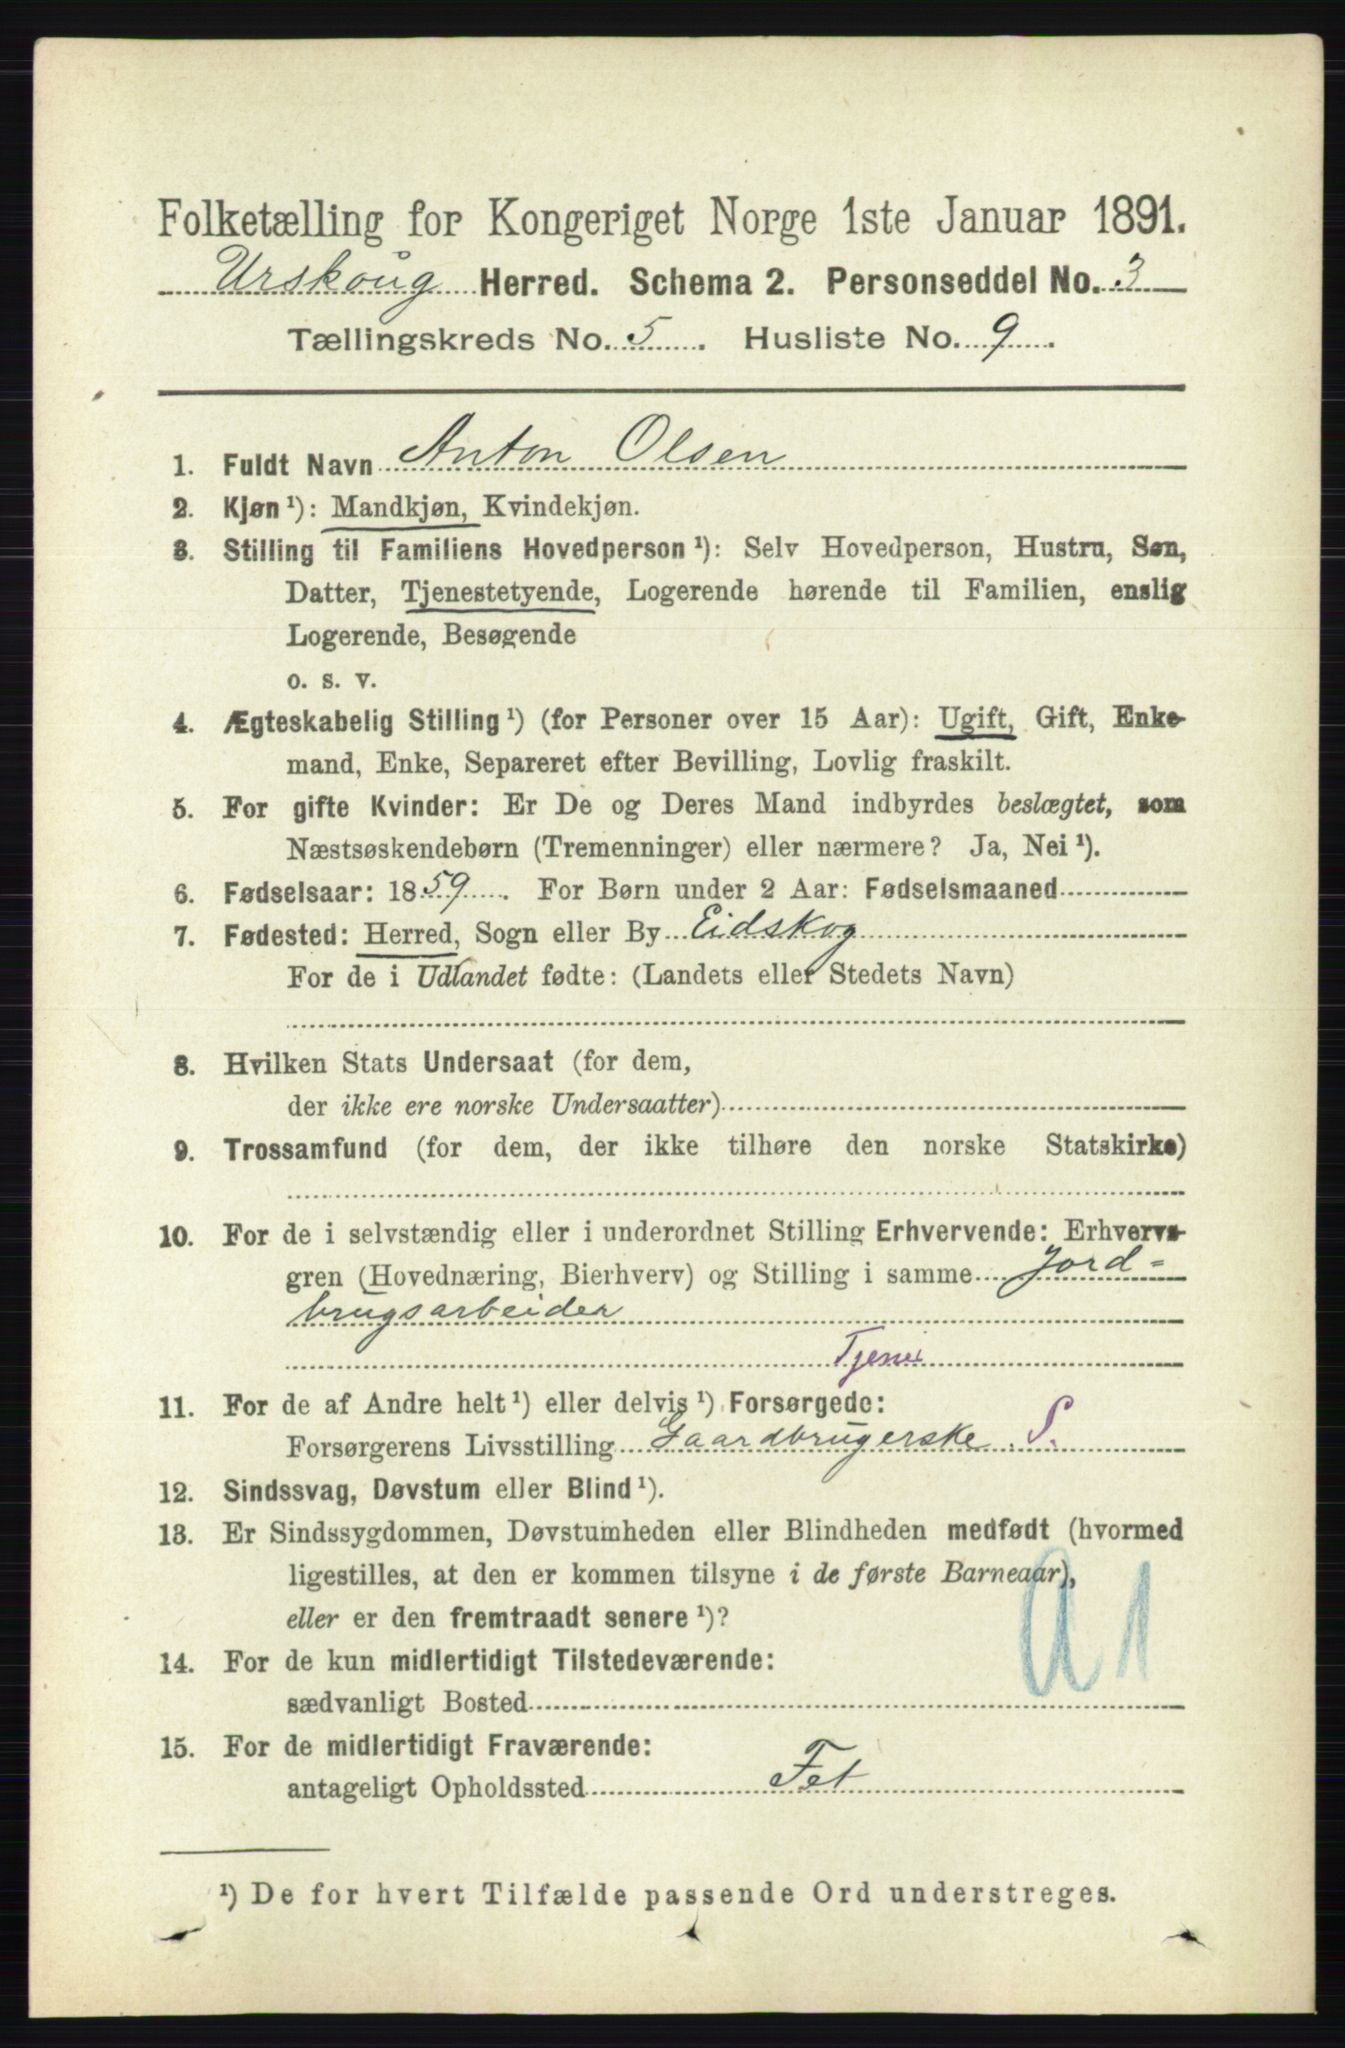 Folketælling for Kongeriget Norge 1ste Januar 1891.
Urskoug Herred. Schema 2. Personseddel No. 3
Tællingskreds No. 5. Husliste No. 9.
1. Fuldt Navn Anton Olsen
2. Kjøn ¹): Mandkjøn, Kvindekjøn.
3. Stilling til Familiens Hovedperson ¹): Selv Hovedperson, Hustru, Søn,
Datter, Tjenestetyende, Logerende hørende til Familien, enslig
Logerende, Besøgende
o. s. v.
4. Ægteskabelig Stilling ¹) (for Personer over 15 Aar): Ugift, Gift, Enke-
mand, Enke, Separeret efter Bevilling, Lovlig fraskilt.
5. For gifte Kvinder: Er De og Deres Mand indbyrdes beslægtet, som
Næstsøskendebørn (Tremenninger) eller nærmere? Ja, Nei ¹).
6. Fødselsaar: 1859. For Børn under 2 Aar: Fødselsmaaned
7. Fødested: Herred, Sogn eller By Eidskog
For de i Udlandet fødte: (Landets eller Stedets Navn)
8. Hvilken Stats Undersaat (for dem,
der ikke ere norske Undersaatter)
9. Trossamfund (for dem, der ikke tilhøre den norske Statskirke)
10. For de i selvstændig eller i underordnet Stilling Erhvervende: Erhvervs-
gren (Hovednæring, Bierhverv) og Stilling i samme Jord-
brugsarbeider
11. For de af Andre helt ¹) eller delvis ¹) Forsørgede:
Forsørgerens Livsstilling Gaardbrugerske. S.
12. Sindssvag, Døvstum eller Blind ¹).
13. Er Sindssygdommen, Døvstumheden eller Blindheden medfødt (hvormed
ligestilles, at den er kommen tilsyne i de første Barneaar),
eller er den fremtraadt senere ¹)?
14. For de kun midlertidigt Tilstedeværende:
sædvanligt Bosted
15. For de midlertidigt Fraværende:
antageligt Opholdssted Fet
¹) De for hvert Tilfælde passende Ord understreges.